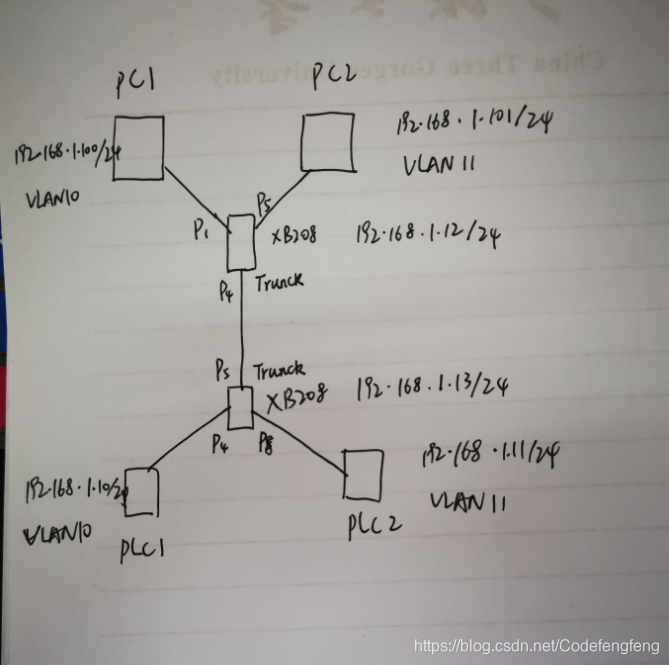 China Three Gorges University
PC1
PC2
192.168.1.100/24
VLAN10
192.168.1.101/24
VLAN 11
P1
P5
XB208
192.168.1.12/24
P4
Trunck
P5
Trunck
XB208
192.168.1.13/24
P4
P8
192.168.1.10/24
VLAN10
PLC1
192.168.1.11/24
VLAN 11
PLC2
https://blog.csdn.net/Codefengfeng